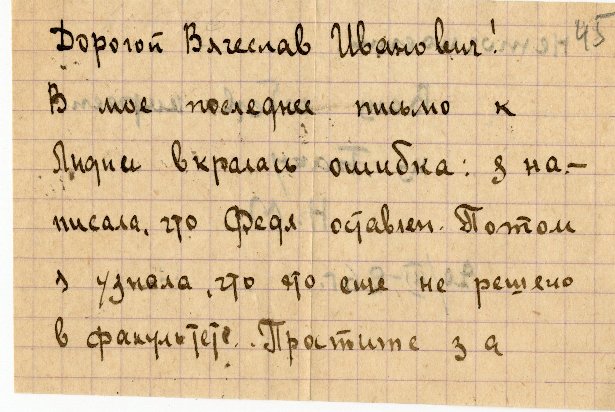 45
Дорогой Вячеслав Иванович!
В мое последнее письмо к
Лидии вкралась ошибка: я на-
писала, что Федя оставлен. Потом
я узнала, что это еще не решено
в факультете. Простите за